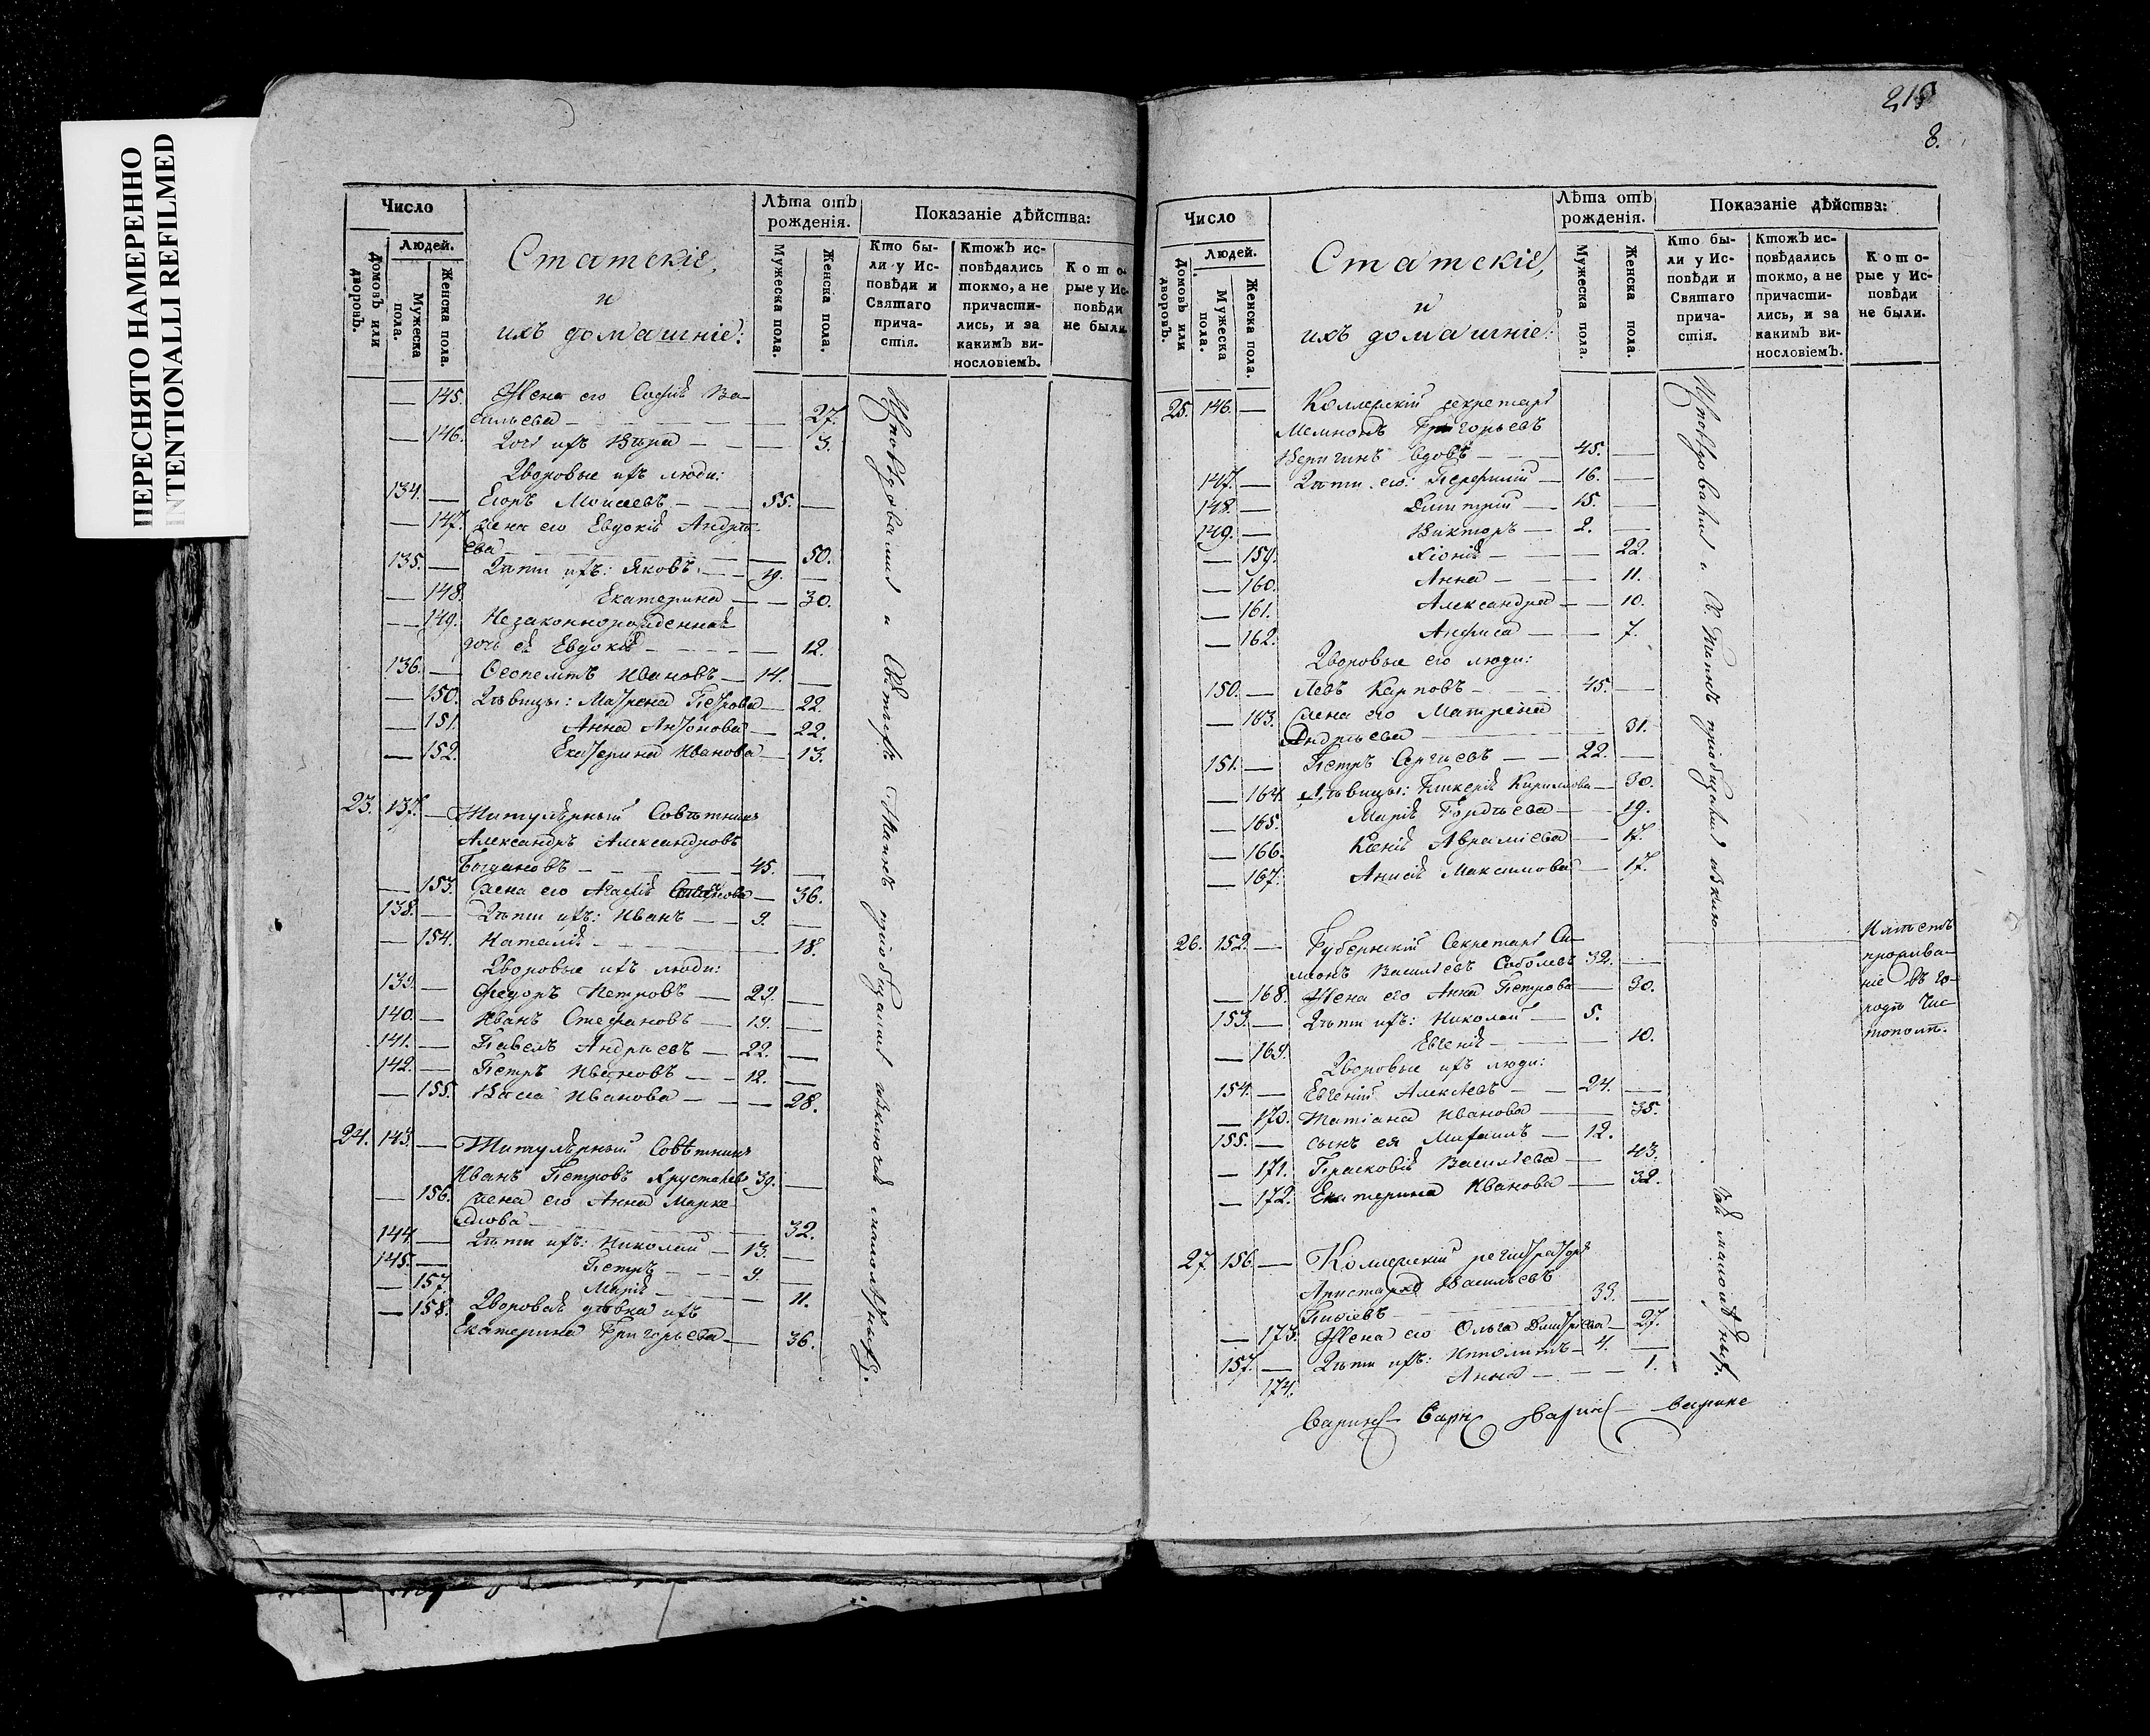 ПЕРЕСНЯТО НАМЕРЕННО
INTENTIONALLI REFILMED
Число
Людей.
Домовъ или дворовъ.
Мужеска пола.
Женска пола.
Статскіе,
и
ихъ домашніе:
Лѣта отъ рожденія.
Мужеска пола.
Женска пола.
Показаніе дѣйства:
Кто были у Исповѣди и Святаго причастія.
Ктожъ исповѣдались токмо, а не причастились, и за какимъ винословіемъ.
Которые у Исповѣди не были.
— 145. Жена его Софія Ва-
сильева — 27.
— 146. Дочь ихъ Вѣра — 3.
Дворовые ихъ люди:
134. — Егоръ Моисеевъ — 55. —
— 147. жена его Евдокія Андрѣ-
ева — 50.
135. — Дѣти ихъ: Яковъ — 19. —
— 148. Екатерина — 30.
— 149. Незаконнорожденная
дочь ея Евдокія — 12.
136. — Ѳеопемптъ Ивановъ — 14. —
— 150. Дѣвицы: Матрена Петрова — 22.
— 151. Анна Антонова — 22.
— 152. Екатерина Иванова — 13.
23. 137. — Титулярный Совѣтникъ
Александръ Александровъ
Богдановъ — 45. —
— 153. Жена его Агафія — 36.
138. — Дѣти ихъ: Иванъ — 9. —
— 154. Наталія — 18.
Дворовые ихъ люди:
139. — Федоръ Петровъ — 29. —
140. — Иванъ Стефановъ — 19. —
141. — Павелъ Андреевъ — 22. —
142. — Петръ Ивановъ — 12. —
— 155. Васса Иванова — 28.
24. 143. — Титулярный Совѣтникъ
Иванъ Петровъ Хрусталевъ 39. —
— 156. Жена его Анна Марке-
лова — 32.
144. — Дѣти ихъ: Николай — 13. —
145. — Петръ — 9. —
— 157. Марія — 11.
— 158. Дворовая дѣвка ихъ
Екатерина Григорьева — 36.
Исповѣдовались и Святыхъ Таинъ пріобщались включая малолѣтныхъ.
215
8.
Число
Людей.
Домовъ или дворовъ.
Мужеска пола.
Женска пола.
Статскіе,
и
ихъ домашніе:
Лѣта отъ рожденія.
Мужеска пола.
Женска пола.
Показаніе дѣйства:
Кто были у Исповѣди и Святаго причастія.
Ктожъ исповѣдались токмо, а не причастились, и за какимъ винословіемъ.
Которые у Исповѣди не были.
25. 146. — Коллежскій секретарь
Мемнонъ Григорьевъ
Веригинъ вдовъ — 45. —
147. — Дѣти его: Порфирій — 16. —
148. — Димитрій — 15. —
149. — Викторъ — 2. —
— 159. Хіонія — 22.
— 160. Анна — 11.
— 161. Александра — 10.
— 162. Анфиса — 7.
Дворовые его люди:
150. — Левъ Карповъ — 45. —
— 163. Жена его Матрена
Андреева — 31.
151. — Петръ Сергиевъ — 22. —
— 164. Дѣвицы: Гликерія Кириллова — 30.
— 165. Марія Гордѣева — 19.
— 166. Ксенія Авраміева — 17.
— 167. Анисія Максимова — 17.
26. 152. — Губернскій Секретарь Си-
меонъ Васильевъ Соболевъ 32. —
— 168. Жена его Анна Петрова — 30.
153. — Дѣти ихъ: Николай — 5.
— 169. Евгенія — 10.
Дворовые ихъ люди:
154. — Евгеній Алексѣевъ — 24. —
— 170. Татіана Иванова — 35.
155. — сынъ ея Михаилъ — 12.
— 171. Прасковія Васильева — 43.
— 172. Екатерина Иванова — 32.
Имѣетъ
прожива-
ніе въ го-
родѣ Чис-
тополѣ.
27. 156. — Коллежскій регистраторъ
Аристархъ Васильевъ
33. —
— 173. Жена его Ольга Дмитріева — 27.
157. — Дѣти ихъ: Ипполитъ — 4. —
174. Анна — 1.